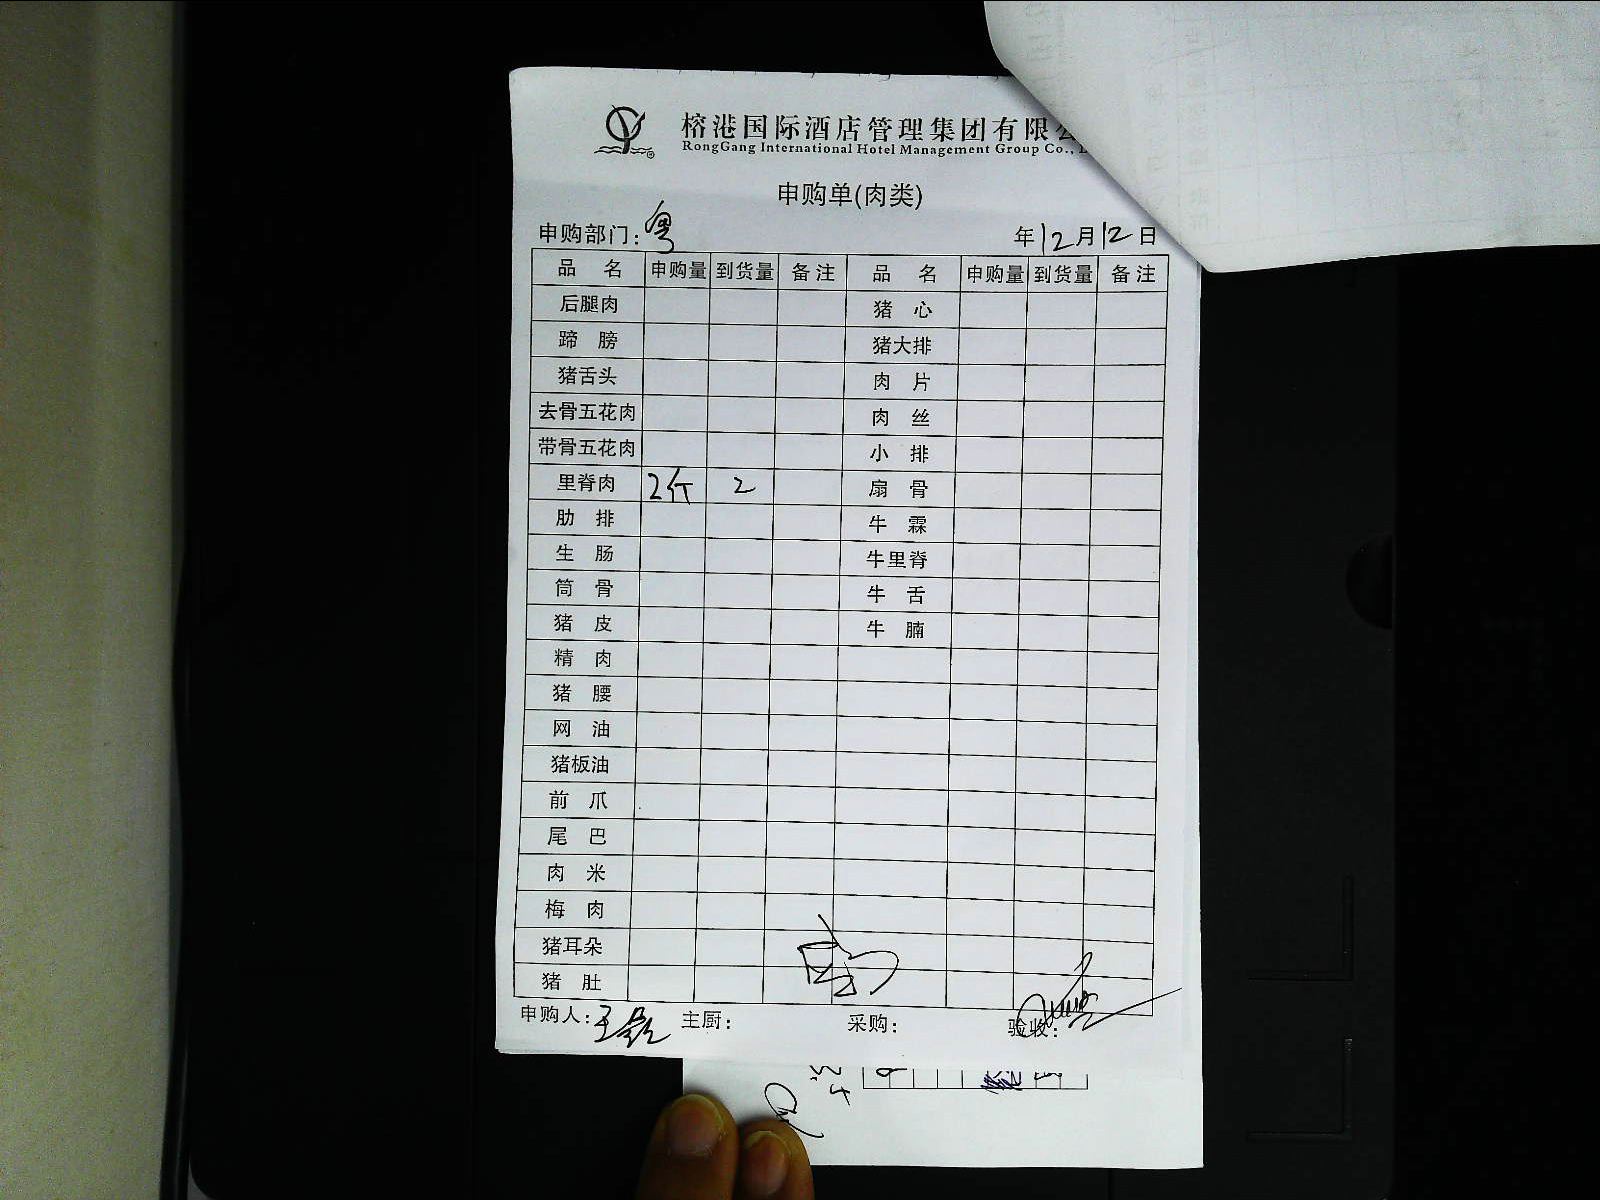 榕港国际酒店管理集团有限
RongGang International Hotel Management Group Co.,
申购单(肉类)
申购部门：粤 年12月12日
品 名 申购量 到货量 备注 品 名 申购量 到货量 备注
后腿肉 猪 心
蹄 膀 猪大排
猪舌头 肉 片
去骨五花肉 肉 丝
带骨五花肉 小 排
里脊肉 2斤 2 扇 骨
肋 排 牛 霖
生 肠 牛里脊
筒 骨 牛 舌
猪 皮 牛 腩
精 肉
猪 腰
网 油
猪板油
前 爪
尾 巴
肉 米
梅 肉
猪耳朵
猪 肚
申购人：王 主厨： 采购： 验收：